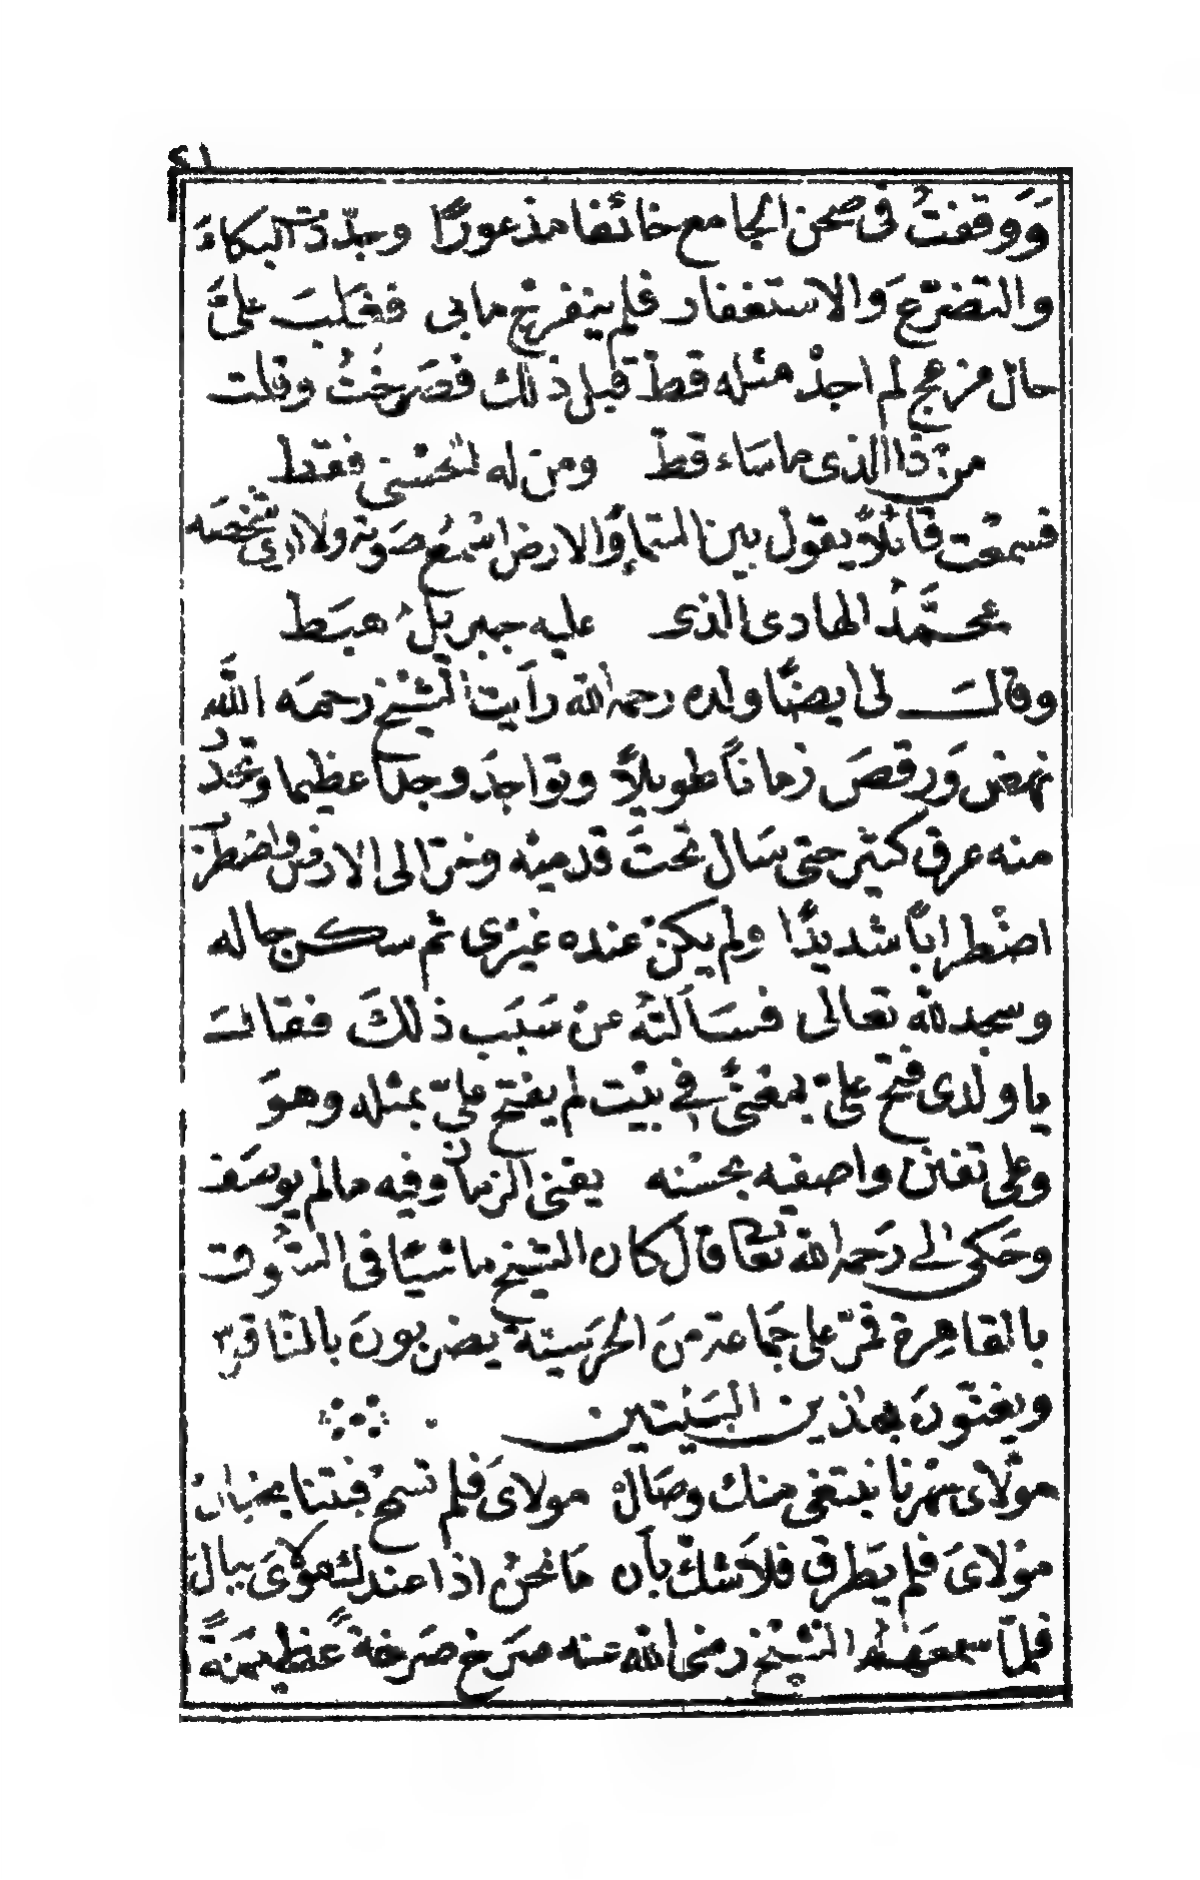 ٢١
وَوقفتُ فى صحن الجامع خائفا مذعورًا وجدّدتُ البكاءَ
والتضرّعَ والاستغفار فلم ينفرج مابى فغلبَ علىَّ
حال مزعج لم اجدْ مثله قطّ قبل ذلك فصَرختُ وقلت
من ذا الذى ماسَاء قطّ ومن له الحُسْنى فقط
فسمعْت قائلاً يقول بين السّماءِ والارض اسْمعُ صَوته ولا ارى شخصَه
محمَّدُ الهادى الذى عليه جبريلُ هبَط
وقالَ لى ايضًا ولده رحمه الله رأيت الشيْخ رحمَه اللَّه
نهض وَرقصَ زماناً طويلاً وتواجدَ وجدًا عظيما وتحدّر
منه عرق كثير حتى سَال تحتَ قدميْه وخرّ الى الارض واضطرب
اضْطراباً شديدًا ولم يكن عنده غيْرى ثم سكن حاله
وسجد لله تعالى فسَاَلتُه عن سَبَب ذلكَ فقالَ
يا ولدى فتح علىّ بمعْنًى فى بيْت لم يفتح علىّ بمثله وهوَ
وعلى تفنن واصفيه بحسْنه يفنى الزمان وفيه مالم يوسَف
وحَكى لى رَحمه الله تعالى قال كان الشيخ ماشيًا فى السُّوق
بالقاهِرة فمرّ على جَماعة منَ الحَرَسيّة يضربونَ بالنّاقوس
ويغنّونَ بهذين البَيْتين
موْلاى سَهرنا نبتغى منك وصَالْ مولاىَ فلم تسْمحْ فبتنا بخيالْ
موْلاىَ فلم يَطرق فلاَ شكّ بأن مَا نحنُ اذا عندكَ مَوْلاىَ ببالْ
فلمّا سمعَهُم الشيْخ رضى الله عنه صرَخ صَرخةً عظيمَةً